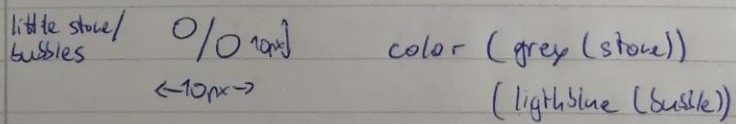 little stone/
bubbles
O/O 10px
←10px→
color (grey (stone))
(ligthblue (bubble))